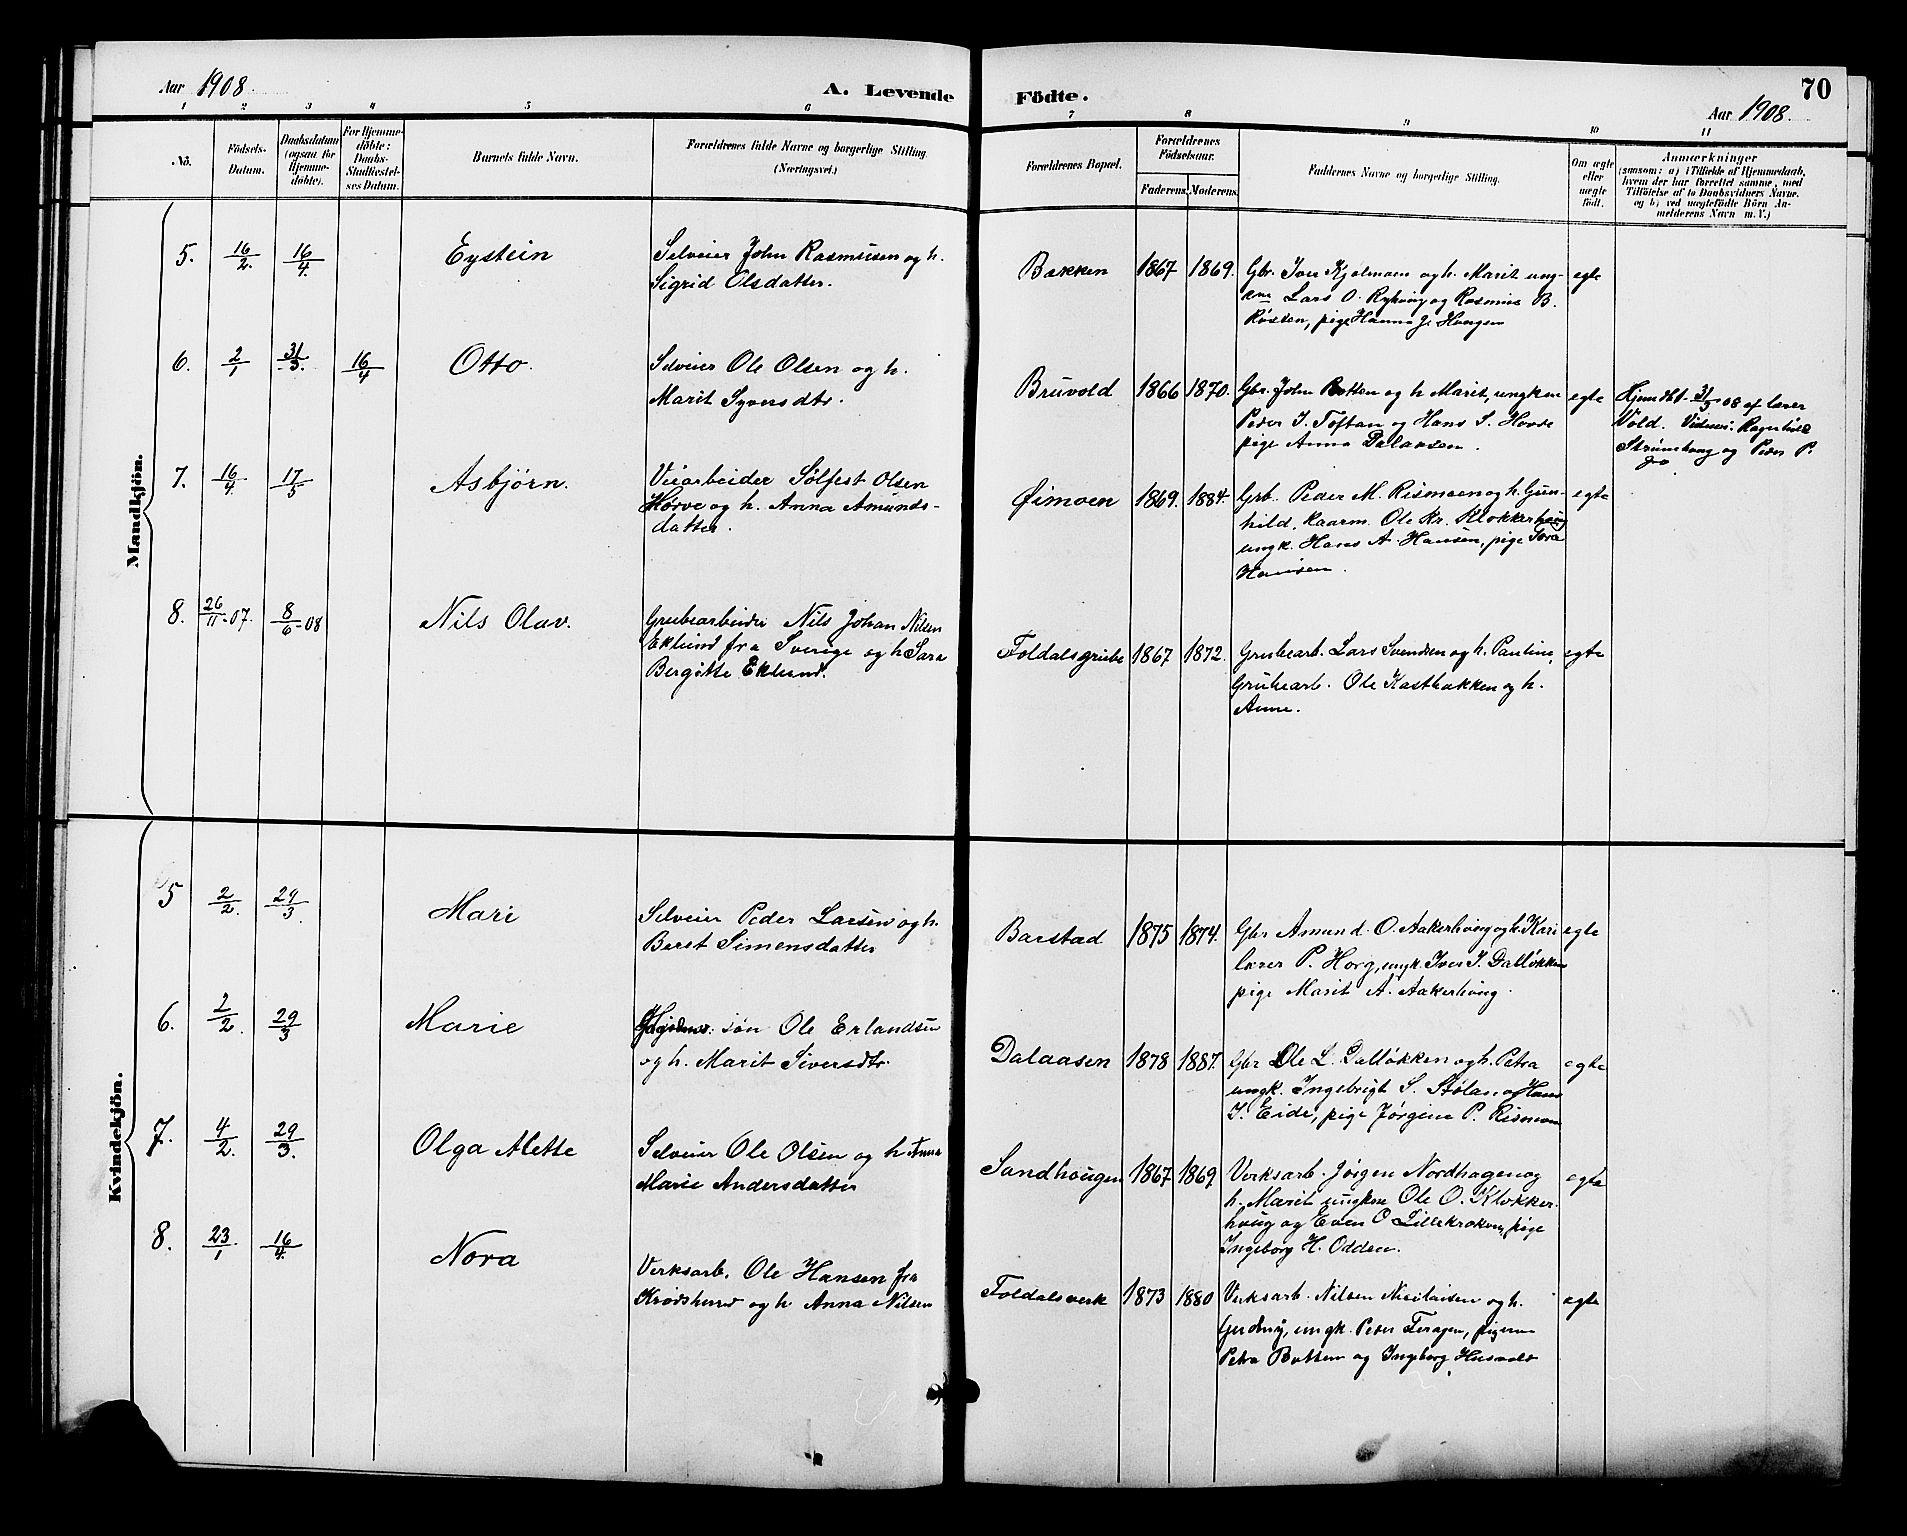 Aar 1908.
A. Levende
Födte.
70
Aar 1908.
1 2 3 4 5 6 7 8 9 10 11
No.
Födsels-
Datum.
Daabsdatum
(ogsaa for
Hjemme-
døbte).
For Hjemme-
döbte:
Daabs-
Stadfæstel-
ses Datum.
Barnets fulde Navn.
Forældrenes fulde Navne og borgerlige Stilling
(Næringsvei.)
Forældrenes Bopæl.
Forældrenes
Födselsaar.
Faderens. Moderens.
Faddernes Navne og borgerlige Stilling.
Om ægte
eller
uægte
født.
Anmærkninger
(saasom: a) i Tilfælde af Hjemmedaab,
hvem der har forrettet samme, med
Tilföielse af to Daabsvidners Navne.
og b) ved uægtefödte Börn An-
melderens Navn m. V.)
Mandkjön.
5. 16/2. 16/4. Eystein
Selveier John Rasmusen og h.
Sigrid Olsdatter.
Bakken 1867 1869.
Gbr. Iver Kjølmoen og h. Marit ung-
Lars O. Ryhaug og Rasmus B.
Røsten, pige Hanna J. Haugen
egte
6. 2/1 31/3. 16/4 Otto.
Selveier Ole Olsen og h.
Marit Syversdtr.
Bruvold 1866 1870.
Gbr. John Botten og h Marit, ungken
Peder I. Toftan og Hans S. Hovde
pige Anna Dalaasen.
egte
Hjemdbt 31/3 08 af lærer
Vold. Vidner: Ragnhild
Strømhaug og Peder P.
do
7. 16/4. 17/5 Asbjørn.
Veiarbeider Sølfest Olsen
Hørve og h. Anna Amunds-
datter.
Øimoen 1869. 1884.
Grb. Peder M. Rismoen og h. Gun-
hild, kaarm. Ole Kr. Klokkerhaug
ungk. Hans A. Hansen, pige
Hansen.
egte
8. 26/11-07. 8/6-08 Nils Olav.
Grubearbeider Nils Johan Nilsen
Eklund fra Sverige og h Sara
Bergitte Eklund.
Foldalsgrube 1867 1872.
Grubearb. Lars Svendsen og h. Pauline,
Grubearb. Ole Kastbakken og h.
Anne.
egte
Kvindekjön.
5 2/2. 29/3. Mari
Selveier Peder Larsen og h.
Beret Simensdatter
Barstad 1875 1874.
Gbr Amund O. Aakerhaug og h. Kari
lærer P. Horg, ungk. Iver I. Dalløkken
pige Marit A. Aakerhaug.
egte
6. 2/2. 29/3 Marie
søn Ole Erlandsen
og h. Marit Siversdtr.
Dalaasen 1878 1887.
Gbr Ole L. Dalløkken og h. Petra
ungk. Ingebrigt S. Stølan og Hans
I. Eide, pige Jørgine P. Rismoen
egte
7. 4/2. 29/3. Olga Alette
Selveier Ole Olsen og h Anna
Marie Andersdatter
Sandhaugen 1867 1869
Verksarb. Jørgen Nordhagen og
h. Marit ungkne Ole O. Klokker-
haug og Even O Lillekroken, pige
Ingeborg H. Odden.
egte
8. 23/1 16/4. Nora
Verksarb. Ole Hansen fra
Krødsherred og h Anna Nilsen
Foldalsverk 1873 1880
Verksarb. Nilsen Nicolaisen og h.
ungk. Peder Feragen, pigerne
Petra Botten og Ingeborg Husvolt
egte